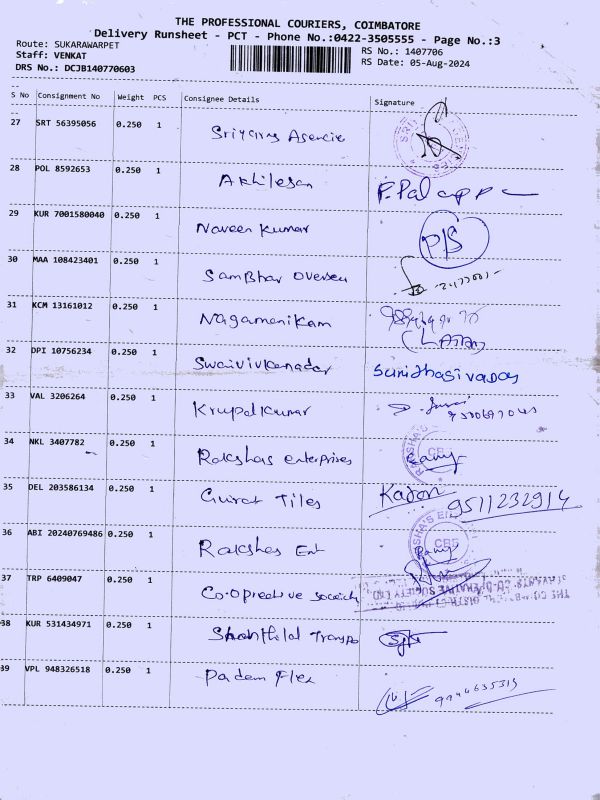 THE PROFESSIONAL COURIERS, COIMBATORE
Delivery Runsheet - PCT - Phone No.:0422-3505555 - Page No.:3
Route: SUKARAWARPET
RS No.: 1407706
Staff: VENKAT
RS Date: 05-Aug-2024
DRS No.: DCJB140770603
S No Consignment No Weight PCS Consignee Details Signature
27 SRT 56395056 0.250 1
28 POL 8592653 0.250 1 Akhilesan
29 KUR 7001580040 0.250 1 Naveen Kumar P/S
30 MAA 108423401 0.250 1 Sambhar Oversea
31 KCM 13161012 0.250 1 Nagamanikam
(LATA)
32 DPI 10756234 0.250 1
33 VAL 3206264 0.250 1 Krupalkumar
34 NKL 3407782 0.250 1 Rakshas enterprises
35 DEL 203586134 0.250 1 Gujrat Tiles 9511232914
36 ABI 20240769486 0.250 1 Rakshas Ent CBE
37 TRP 6409047 0.250 1
38 KUR 531434971 0.250 1
39 VPL 948326518 0.250 1 Padam Flex